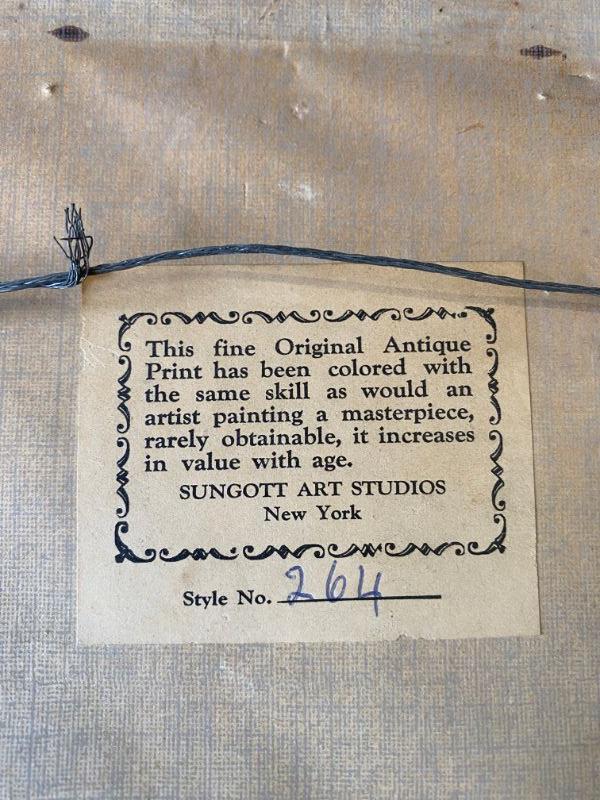 This fine Original Antique
Print has been colored with
the same skill as would an
artist painting a masterpiece,
rarely obtainable, it increases
in value with age.
SUNGOTT ART STUDIOS
New York
Style No. 264